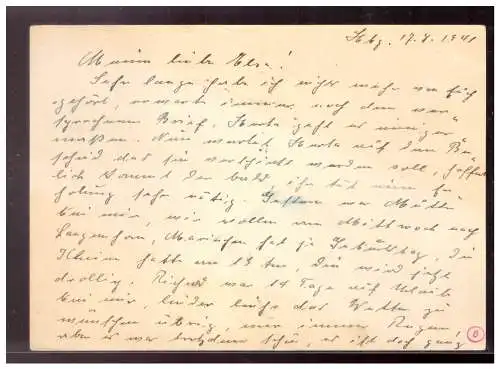 Hbg. 17.4.1941
Meine liebe Elsa!
Sehr lange habe ich nichts mehr von Euch
gehört, warte immer noch den ver-
sprochenen Brief, Herta geht es einiger
maßen. Nun wartet Herta auf den Be-
scheid das sie verschickt werden soll, hoffent
lich kommt der bald, ihr tät eine Er
holung sehr nötig. Gestern war Mutti
bei mir, wir wollen am Mittwoch nach
Langenhorn, Mariechen hat ja Geburtstag, die
Kleine hatte am 13ten, die wird jetzt
drollig. Richard war 14 Tage auf Urlaub
bei mir, leider ließ das Wetter zu
wünschen übrig, nur immer Regen,
aber es war trotzdem schön, er ist doch ganz